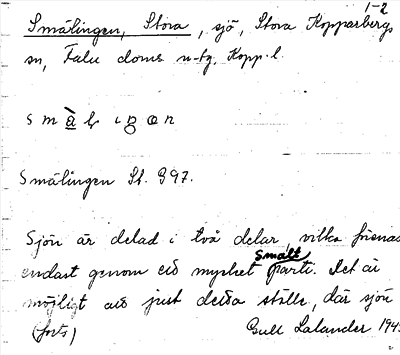 1-2
Smälingen, Stora, sjö, Stora Kopparbergs
sn, Falu doms. u-tg, Kopp. l.
Smälingen St. G97.
Sjön är delad i två delar, vilka förenas
endast genom ett mycket smalt parti. Det är
möjligt att just detta ställe, där sjön
(forts) Gull Lalander 194